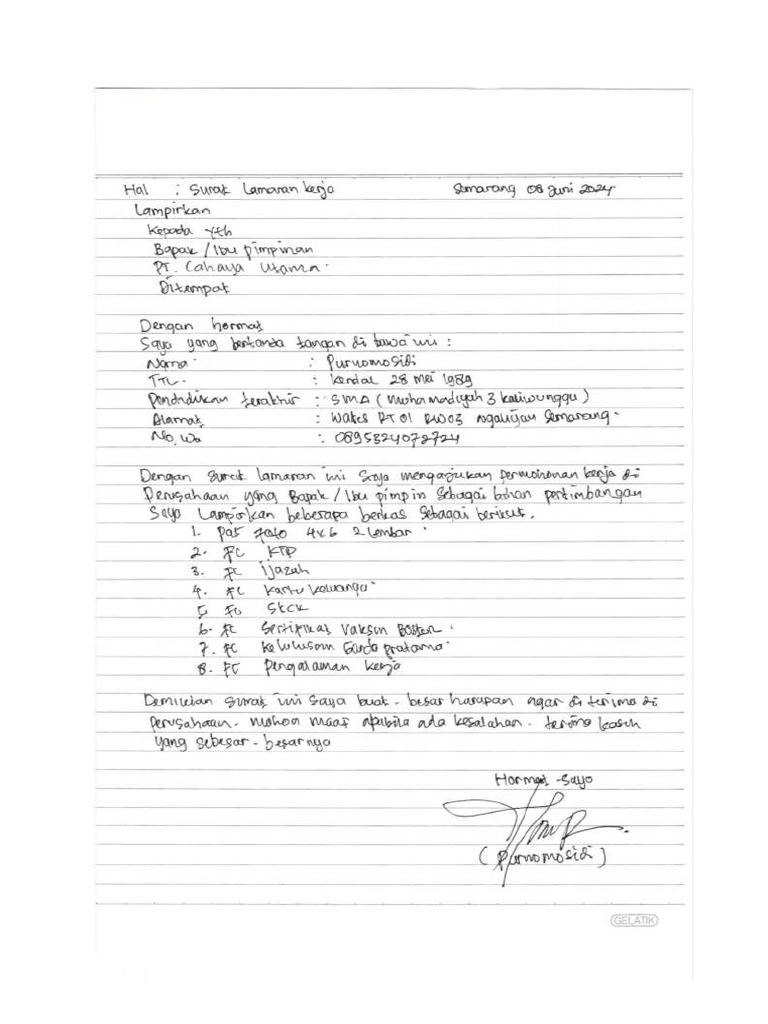 Hal : Surat Lamaran kerja Semarang 08 Juni 2024
Lampirkan
Kepada Yth
Bapak / Ibu pimpinan
PT. Cahaya Utama
Ditempat
Dengan hormat
Saya yang bertanda tangan di bawa ini :
Nama : Purnomosidi
TTL : Kendal 28 mei 1989
Pendidikan terakhir : SMA ( Muhamadiyah 3 kaliwunggu )
Alamat : Wates RT 01 RW 03 ngaliyan Semarang.
No. Wa : 0895324072724
Dengan surat lamaran ini saya mengajukan permohonan kerja di
Perusahaan yang Bapak / Ibu pimpin sebagai bahan pertimbangan
Saya Lampirkan beberapa berkas sebagai berikut.
1. pas foto 4x6 2 lembar
2. FC KTP
3. FC ijazah
4. FC Kartu Keluarga
5 FC SKCK
6. FC Sertifikat Vaksin Boster
7. FC Kelulusan Garda pratama
8. FC Pengalaman kerja
Demikian surat ini saya buat. besar harapan agar di terima di
perusahaan. mohon maaf apabila ada kesalahan. terima kasih
yang sebesar-besarnya
Hormat Saya
( Purnomosidi )
GELATIK